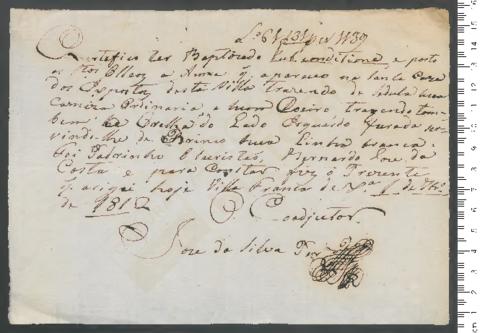 Certifico ter Baptizado sub conditione e posto
os Stos Oleos a Anna q appareceo na Santa Caza
dos Expostos desta Villa trazendo de Sedula huma
Camiza Ordinaria e hum Coeiro trazendo tam-
bem a Orelha do Lado Esquerdo furada ser-
vindo-lhe de Brinco huma Linha branca.
foi Padrinho Bernardo Joze da
Costa e para Constar fiz o Prezente
q asignei hoje Villa Franca de Xra de
de 1812
O Coadjutor
Joze da Silva